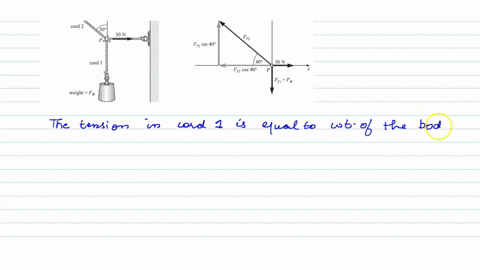 cord 2
50°
30 N
P
cord 1
weight = F_W
F_T2
F_T2 sin 40°
40°
30 N
F_T2 cos 40°
P
x
F_T1 = F_W
The tension in cord 1 is equal to wt. of the bod